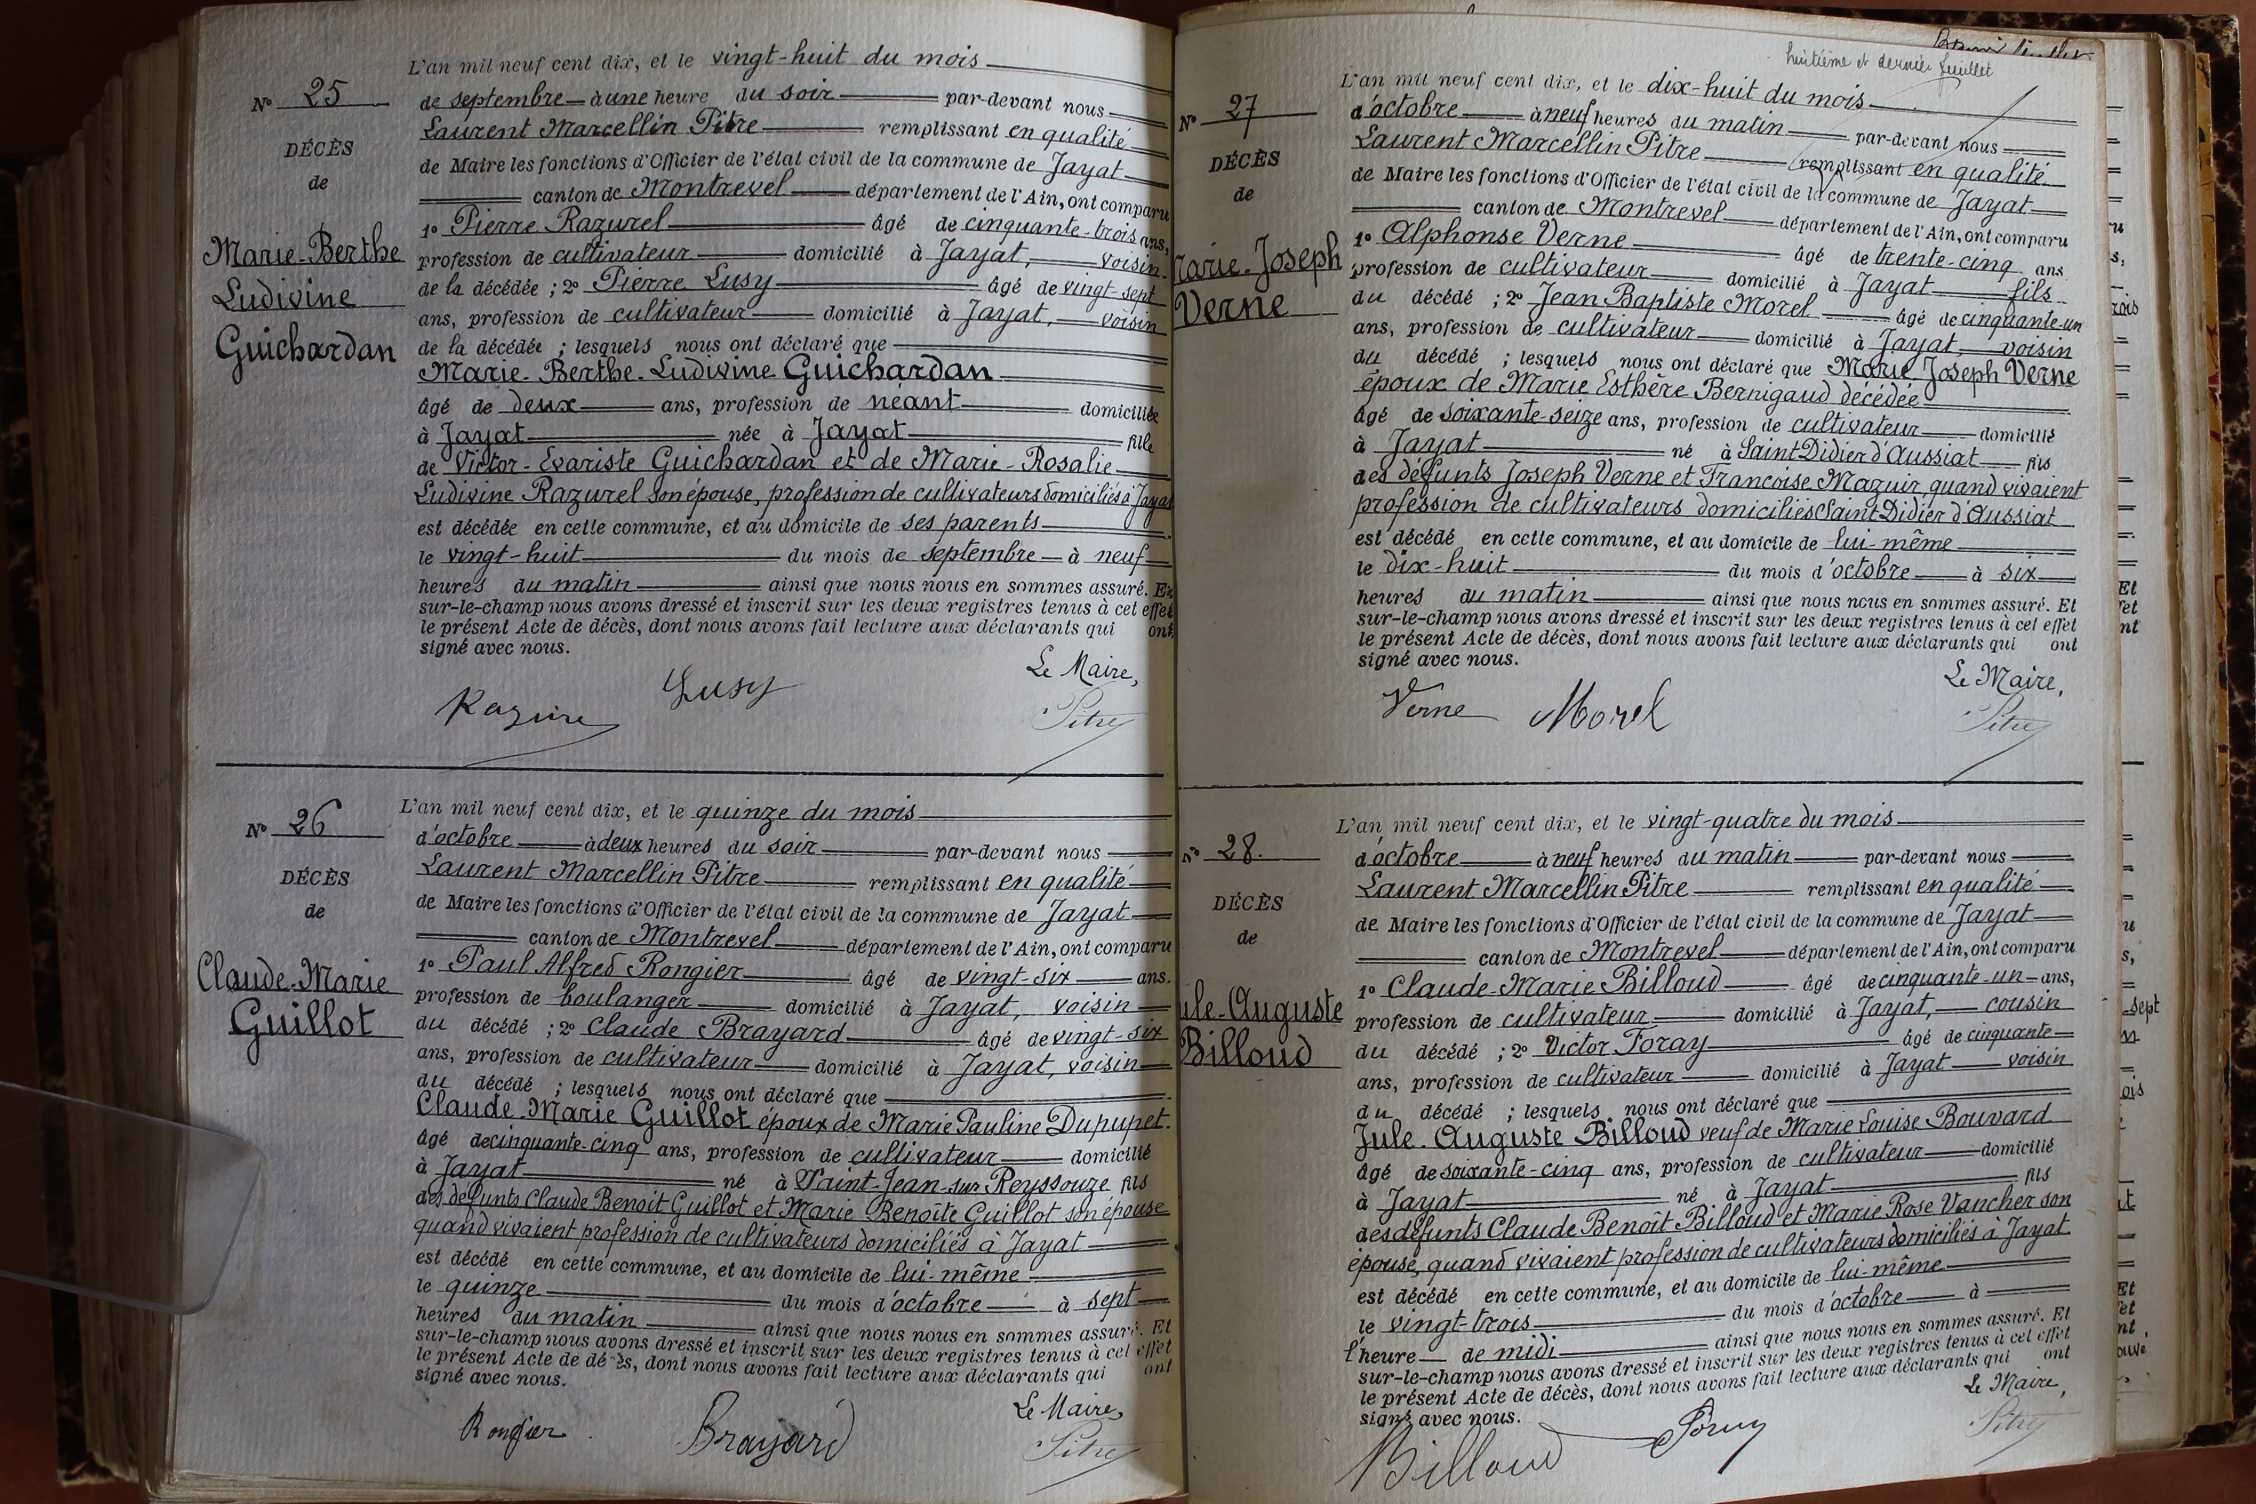 N° 25
DÉCÈS
de
Marie-Berthe
Ludivine
Guichardan
L'an mil neuf cent dix, et le vingt-huit du mois
de septembre à une heure du soir par-devant nous
Laurent Marcellin Pitre remplissant en qualité
de Maire les fonctions d'Officier de l'état civil de la commune de Jayat
canton de Montrevel département de l'Ain, ont comparu
1° Pierre Razurel âgé de cinquante-trois ans,
profession de cultivateur domicilié à Jayat, voisin
de la décédée ; 2° Pierre Lusy âgé de vingt-sept
ans, profession de cultivateur domicilié à Jayat, voisin
de la décédée ; lesquels nous ont déclaré que
Marie-Berthe-Ludivine Guichardan
âgé de deux ans, profession de néant domiciliée
à Jayat née à Jayat fille
de Victor-Evariste Guichardan et de Marie-Rosalie
Ludivine Razurel son épouse, profession de cultivateurs domiciliés à Jayat
est décédée en cette commune, et au domicile de ses parents
le vingt-huit du mois de septembre à neuf
heures du matin ainsi que nous nous en sommes assuré. Et
sur-le-champ nous avons dressé et inscrit sur les deux registres tenus à cet effet
le présent Acte de décès, dont nous avons fait lecture aux déclarants qui ont
signé avec nous.
Le Maire,
Lusy
Pitre
N° 26
DÉCÈS
de
Claude-Marie
Guillot
L'an mil neuf cent dix, et le quinze du mois
d'octobre à deux heures du soir par-devant nous
Laurent Marcellin Pitre remplissant en qualité
de Maire les fonctions d'Officier de l'état civil de la commune de Jayat
canton de Montrevel département de l'Ain, ont comparu
1° Paul Alfred Rongier âgé de vingt-six ans.
profession de boulanger domicilié à Jayat, voisin
du décédé ; 2° Claude Brayard âgé de vingt-six
ans, profession de cultivateur domicilié à Jayat, voisin
du décédé ; lesquels nous ont déclaré que
Claude-Marie Guillot époux de Marie Pauline Dupupet.
âgé de cinquante-cinq ans, profession de cultivateur domicilié
à Jayat né à Saint-Jean-sur Reyssouze fils
des défunts Claude Benoit Guillot et Marie Benoîte Guillot son épouse
quand vivaient profession de cultivateurs domiciliés à Jayat
est décédé en cette commune, et au domicile de lui-même
le quinze du mois d'octobre à sept
heures du matin ainsi que nous nous en sommes assuré. Et
sur-le-champ nous avons dressé et inscrit sur les deux registres tenus à cet effet
le présent Acte de décès, dont nous avons fait lecture aux déclarants qui ont
signé avec nous.
Le Maire,
Rongier Brayard Pitre
huitième et dernier feuillet
N° 27
DÉCÈS
de
Marie-Joseph
Verne
L'an mil neuf cent dix, et le dix-huit du mois
d'octobre à neuf heures du matin par-devant nous
Laurent Marcellin Pitre remplissant en qualité
de Maire les fonctions d'Officier de l'état civil de la commune de Jayat
canton de Montrevel département de l'Ain, ont comparu
1° Alphonse Verne âgé de trente-cinq ans
profession de cultivateur domicilié à Jayat fils
du décédé ; 2° Jean Baptiste Morel âgé de cinquante-un
ans, profession de cultivateur domicilié à Jayat, voisin
du décédé ; lesquels nous ont déclaré que Marie Joseph Verne
époux de Marie Esthère Bernigaud décédée
âgé de soixante-seize ans, profession de cultivateur domicilié
à Jayat né à Saint Didier d'Aussiat fils
des défunts Joseph Verne et Francoise Mazuir, quand vivaient
profession de cultivateurs domiciliés Saint Didier d'Aussiat
est décédé en cette commune, et au domicile de lui-même
le dix-huit du mois d'octobre à six
heures du matin ainsi que nous nous en sommes assuré. Et
sur-le-champ nous avons dressé et inscrit sur les deux registres tenus à cet effet
le présent Acte de décès, dont nous avons fait lecture aux déclarants qui ont
signé avec nous.
Le Maire,
Verne Morel Pitre
N° 28.
DÉCÈS
de
Jule-Auguste
Billoud
L'an mil neuf cent dix, et le vingt-quatre du mois
d'octobre à neuf heures du matin par-devant nous
Laurent Marcellin Pitre remplissant en qualité
de Maire les fonctions d'Officier de l'état civil de la commune de Jayat
canton de Montrevel département de l'Ain, ont comparu
1° Claude-Marie Billoud âgé de cinquante-un ans,
profession de cultivateur domicilié à Jayat, cousin
du décédé ; 2° Victor Foray âgé de cinquante
ans, profession de cultivateur domicilié à Jayat voisin
du décédé ; lesquels nous ont déclaré que
Jule-Auguste Billoud veuf de Marie Louise Bouvard
âgé de soixante-cinq ans, profession de cultivateur domicilié
à Jayat né à Jayat fils
des défunts Claude Benoît Billoud et Marie Rose Vancher son
épouse, quand vivaient profession de cultivateurs domiciliés à Jayat
est décédé en cette commune, et au domicile de lui-même
le vingt-trois du mois d'octobre à
l'heure de midi ainsi que nous nous en sommes assuré. Et
sur-le-champ nous avons dressé et inscrit sur les deux registres tenus à cet effet
le présent Acte de décès, dont nous avons fait lecture aux déclarants qui ont
signé avec nous.
Le Maire,
Billoud Foray Pitre